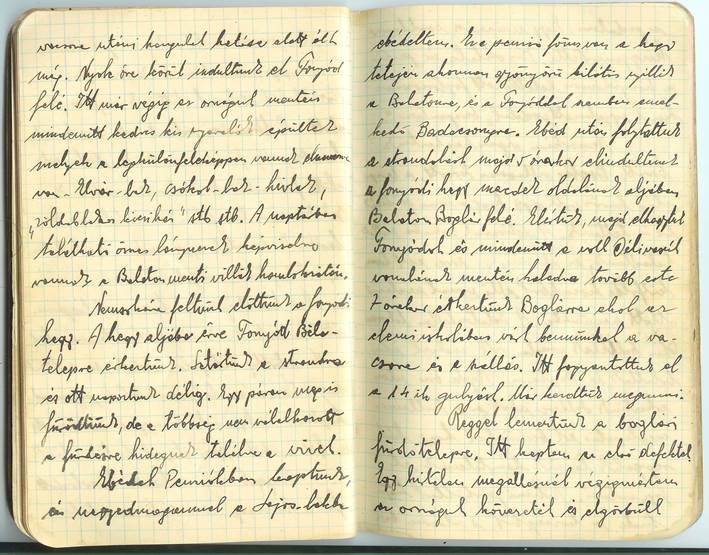 vacsora utáni hangulat hatása alatt állt
még. Nyolc óra körül indultunk el Fonyód
felé. Itt már végig az országút mentén
mindenütt kedves kis nyaralók épültek
melyek a legkülönfélébbképpen vannak
van - Elvár-lak, csókol-lak - hívlak,
"zöldablakos kicsikém" stb stb. A naptárban
található összes lánynevek képviselve
vannak a Balaton menti villák homlokzatán.
Nemsokára feltűnt előttünk a fonyódi
hegy. A hegy aljába érve Fonyód Béla-
telepre érkeztünk. Letértünk a strandra
és ott napoztunk délig. Egy páran meg is
fürödtünk, de a többség nem vállalkozott
a fürdésre hidegnek találva a vizet.
Ebédet Penzióban kaptunk,
én negyedmagammal a Lajos-lakba
ebédeltem. Ez a penzió fönn van a hegy
tetején ahonnan gyönyörű kilátás nyílik
a Balatonra, és a Fonyóddal szemben emel-
kedő Badacsonyra. Ebéd után folytattuk
a strandolást majd 5 órakor elindultunk
a fonyódi hegy meredek oldalának aljában
Balaton Boglár felé. Elértük, majd elhagytuk
Fonyódot és mindenütt a volt Délivasút
vonalának mentén haladva tovább este
7 órakor érkeztünk Boglárra ahol az
elemi iskolában várt bennünket a va-
csora és a szállás. Itt fogyasztottuk el
a 14 ik gulyást. Már kezdtük megunni.
Reggel lementünk a boglári
fürdőtelepre. Itt kaptam az első defektet.
Egy hirtelen megállásnál végigmértem
az országút kövezetét és elgörbült